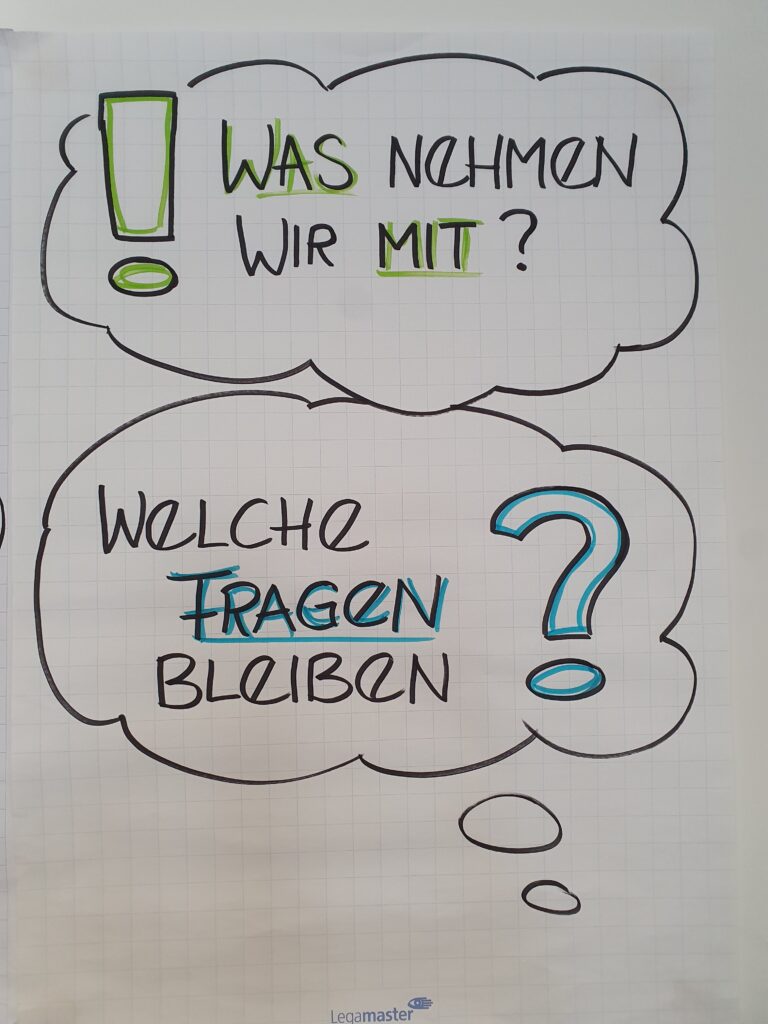 ! WAS NEHMEN
WIR MIT ?
WELCHE
FRAGEN
BLEIBEN ?
Legamaster